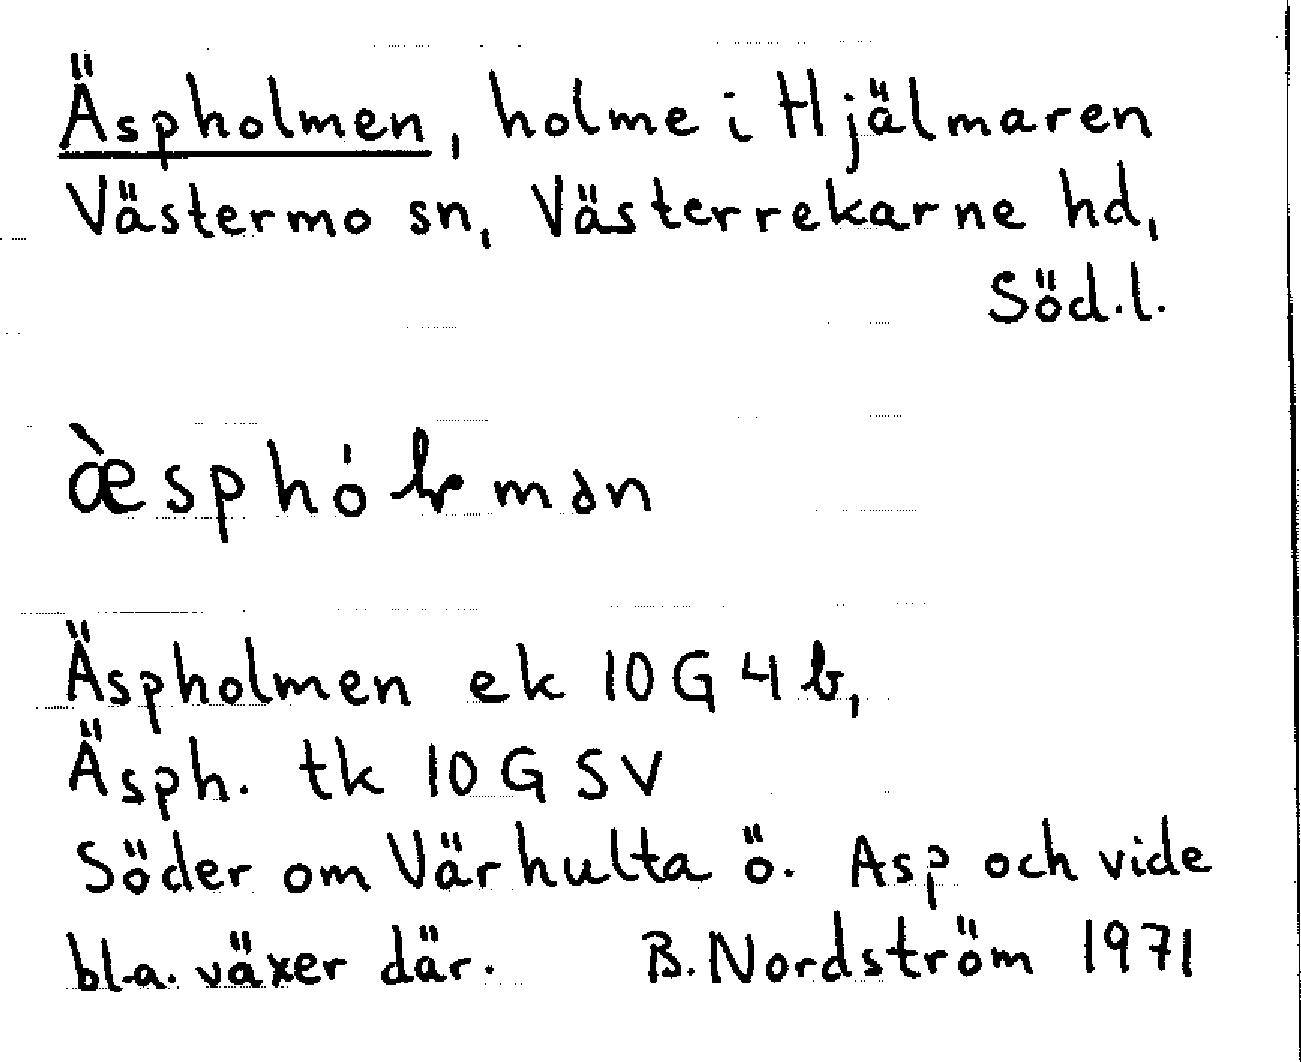 Äspholmen, holme i Hjälmaren
Västermo sn, Västerrekarne hd,
Söd.l.
Äspholmen ek 10 G 4 b,
Äsph. tk 10 G SV
Söder om Värhulta ö. Asp och vide
bl.a. växer där. B. Nordström 1971